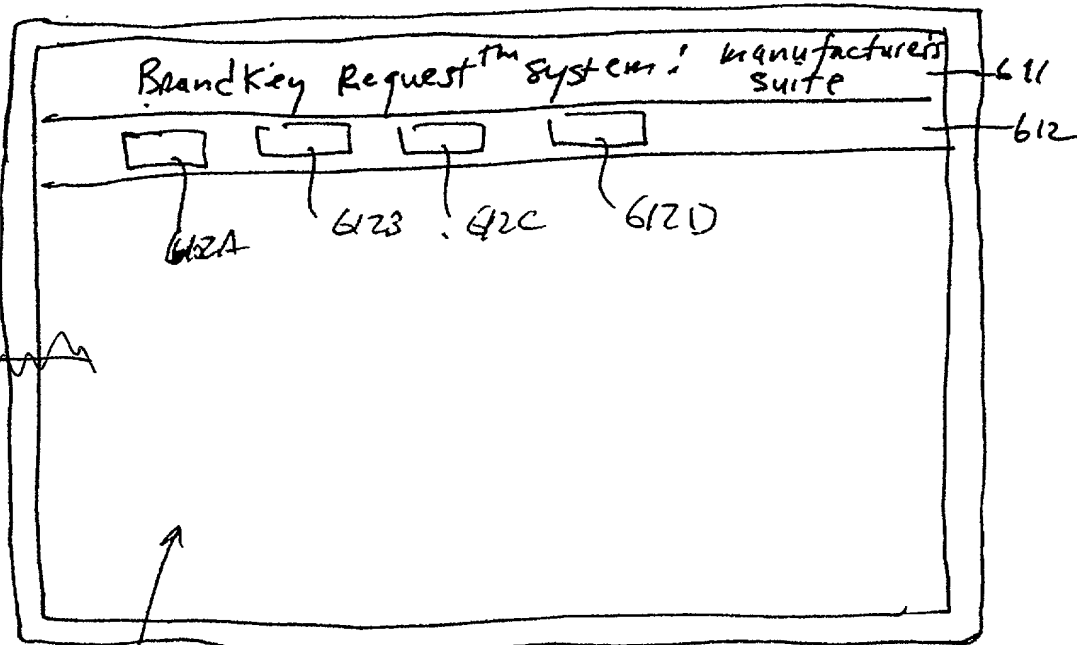 BrandKey Request™ System: Manufacturer's
Suite
611
612
612A
612B
612C
612D